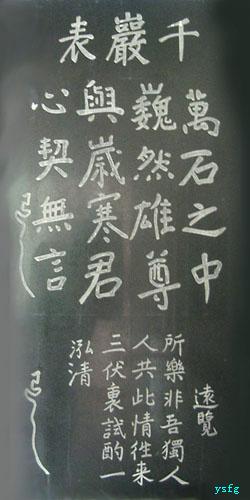 千巖表
萬石之中
巍然雄尊
與歲寒君
心契無言
遠覽
所樂非吾獨人
人共此情徃来
三伏裏試酌一
泓清
ysfg